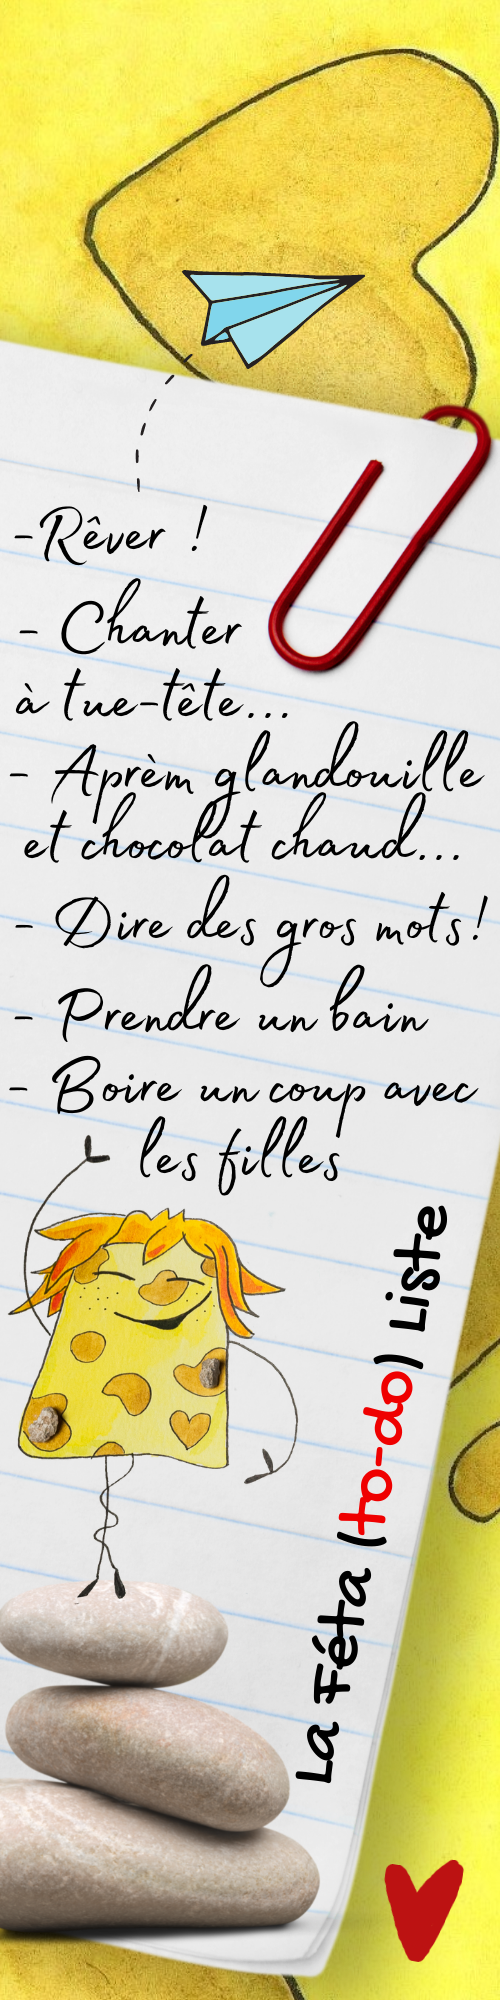 -Rêver !
- Chanter
à tue-tête...
- Aprèm glandouille
et chocolat chaud...
- Dire des gros mots!
- Prendre un bain
- Boire un coup avec
les filles
La Féta (to-do) Liste